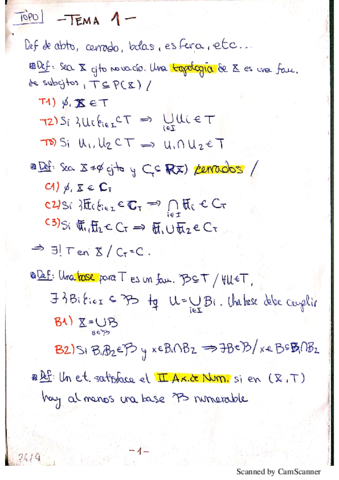 TOPO
- TEMA 1 -
Def de abto, cerrado, bolas, esfera, etc...
Def: Sea X cjto no vacío. Una topología de X es una fam.
de subcjtos, T ⊆ P(X) /
T1) ∅, X ∈ T
T2) Si {Ui}i∈I ⊂ T ⇒ ⋃i∈I Ui ∈ T
T3) Si U1, U2 ⊂ T ⇒ U1 ∩ U2 ∈ T
Def: Sea X ≠ ∅ cjto y C ⊆ P(X) cerrados /
C1) ∅, X ∈ CT
C2) Si {Fi}i∈I ⊂ CT ⇒ ⋂i∈I Fi ∈ CT
C3) Si F1, F2 ∈ CT ⇒ F1 ∪ F2 ∈ CT
⇒ ∃! T en X / CT = C.
Def: Una base para T es un fam. B ⊆ T / ∀U ∈ T,
∃ {Bi}i∈I ⊆ B tq U = ⋃i∈I Bi. Una base debe cumplir
B1) X = ⋃B∈B B
B2) Si B1, B2 ∈ B y x ∈ B1 ∩ B2 ⇒ ∃B ∈ B / x ∈ B ⊆ B1 ∩ B2
Def: Un e.t. satisface el II Ax. de Num. si en (X, T)
hay al menos una base B numerable
- 1 -
Scanned by CamScanner